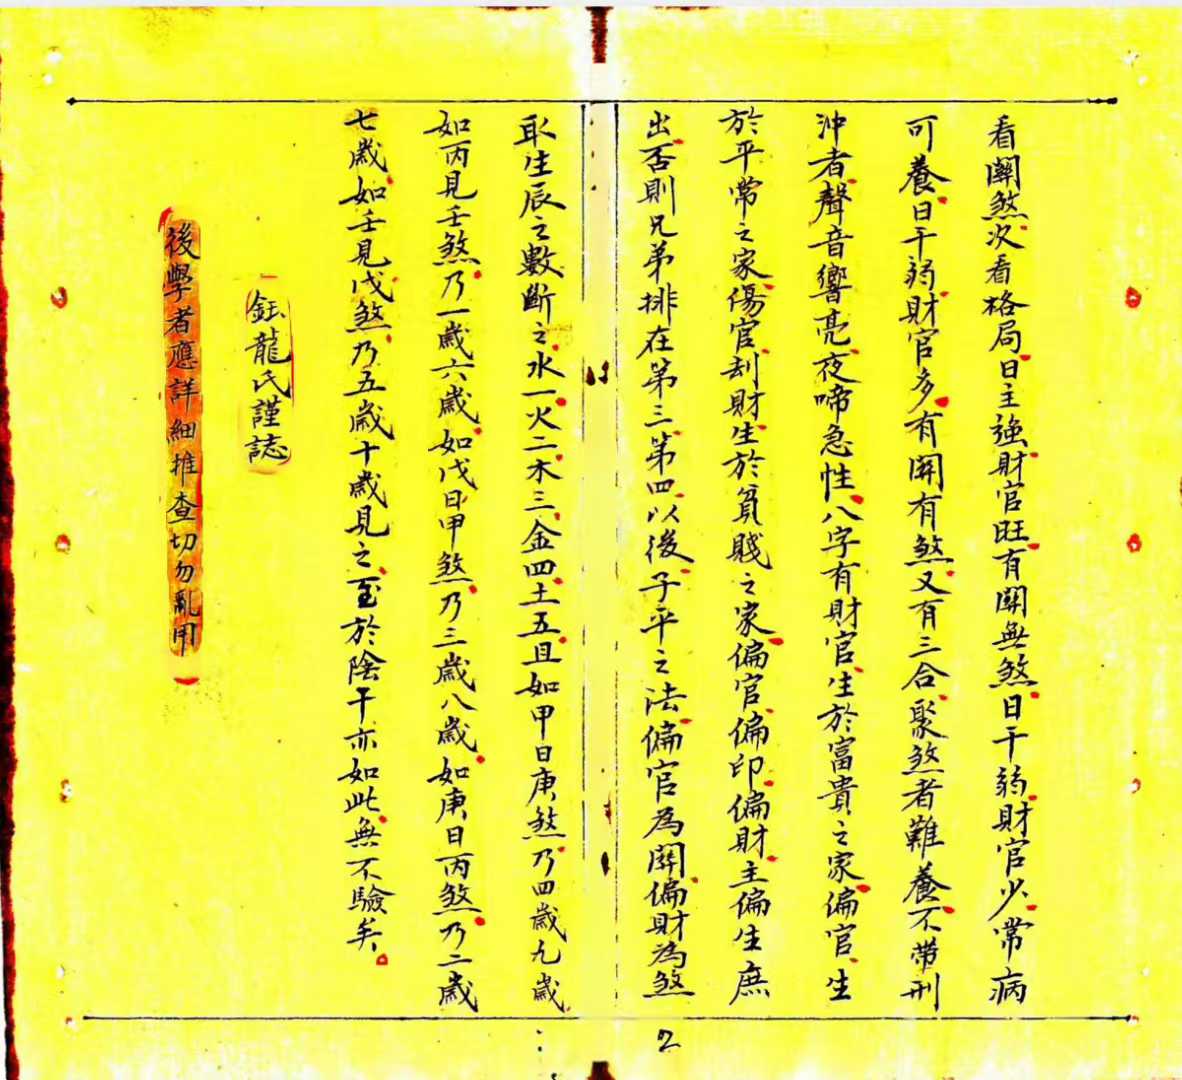 看關煞次看格局日主強財官旺有關無煞日干弱財官少常病
可養日干弱財官多有關有煞又有三合聚煞者難養不帶刑
沖者聲音響亮夜啼急性八字有財官生於富貴之家偏官生
於平常之家傷官刦財生於貧賤之家偏官偏印偏財主偏生庶
出否則兄弟排在第三第四以後子平之法偏官為關偏財為煞
取生辰之數斷之水一火二木三金四土五且如甲日庚煞乃四歲九歲
如丙見壬煞乃一歲六歲如戊日甲煞乃三歲八歲如庚日丙煞乃二歲
七歲如壬見戊煞乃五歲十歲見之至於陰干亦如此無不驗矣
鈺龍氏謹誌
後學者應詳細推查切勿亂用
2